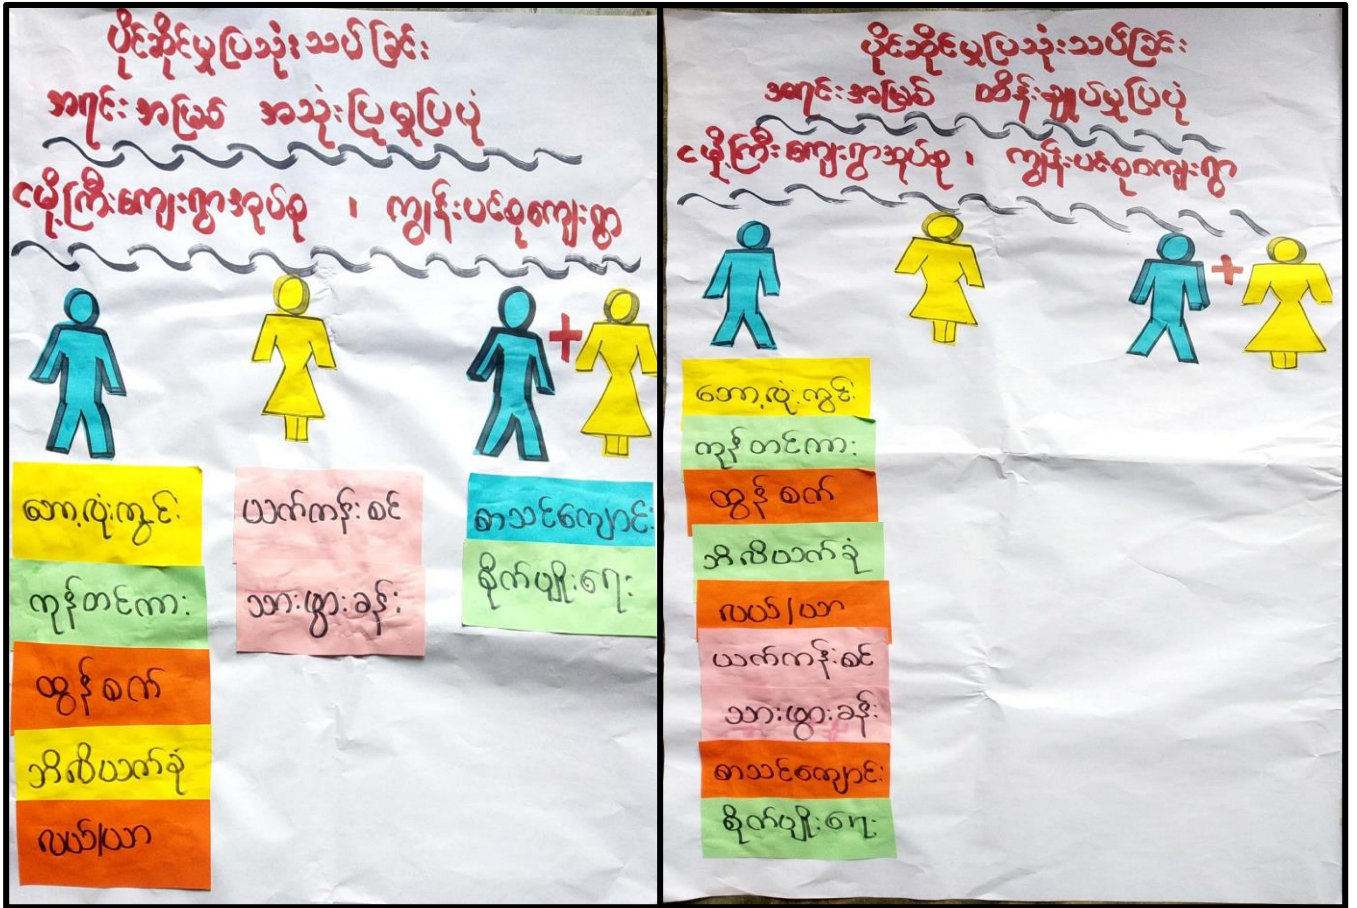 ပိုင်ဆိုင်မှုပြသုံးသပ်ခြင်း
အရင်းအမြစ် အသုံးပြုမှုပြပုံ
ငမို့ကြီးကျေးရွာအုပ်စု ၊ ကျွန်းပင်စုကျေးရွာ
+
ဘော့လုံးကွင်း
ကုန်တင်ကား
ထွန်စက်
ဘိလိယက်ခုံ
လယ်/ယာ
ယက်ကန်းစင်
သားဖွားခန်း
စာသင်ကျောင်း
စိုက်ပျိုးရေး
ပိုင်ဆိုင်မှုပြသုံးသပ်ခြင်း
အရင်းအမြစ် ထိန်းချုပ်မှုပြပုံ
ငမို့ကြီးကျေးရွာအုပ်စု ၊ ကျွန်းပင်စုကျေးရွာ
+
ဘော့လုံးကွင်း
ကုန်တင်ကား
ထွန်စက်
ဘိလိယက်ခုံ
လယ်/ယာ
ယက်ကန်းစင်
သားဖွားခန်း
စာသင်ကျောင်း
စိုက်ပျိုးရေး